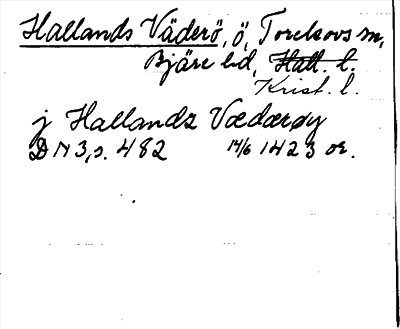 Hallands Väderö, ö, Torekovs sn,
Bjäre hd, Hall. l.
Krist. l.
j Hallandz Vædærøy
DN 3, s. 482 14/6 1423 or.